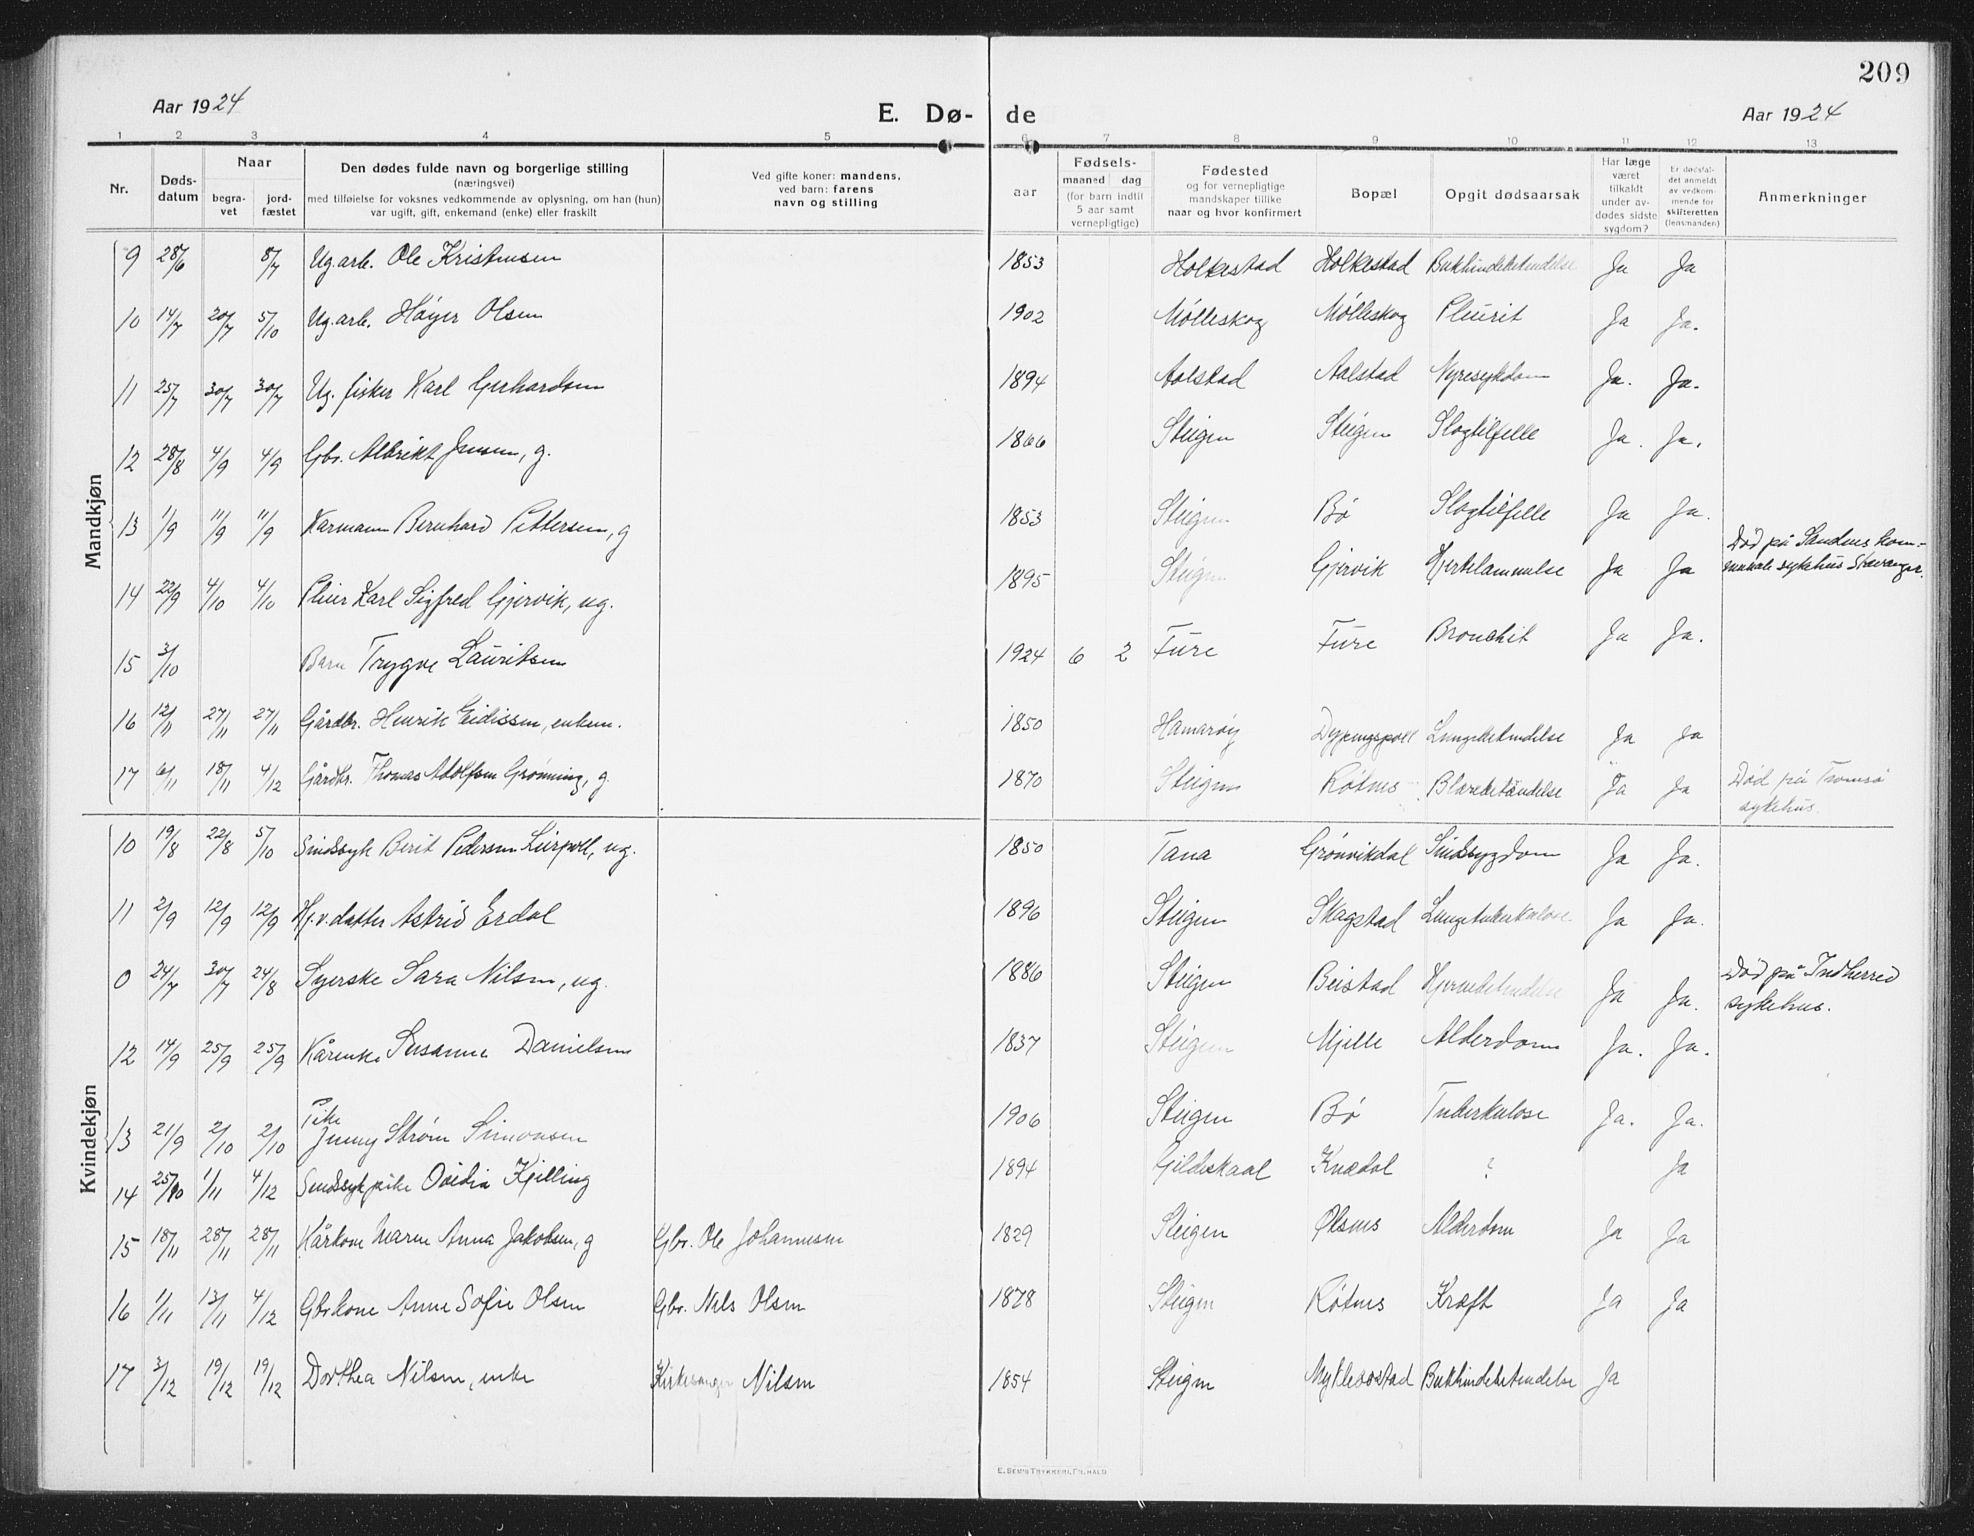 209
Aar 1924
E. Dø-
de
Aar 1924
1 2 3 4 5 6 7 8 9 10 11 12 13
Nr.
Døds-
datum
Naar
begra-
vet
jord-
fæstet
Den dødes fulde navn og borgerlige stilling
(næringsvei)
med tilføielse for voksnes vedkommende av oplysning, om han (hun)
var ugift, gift, enkemand (enke) eller fraskilt
Ved gifte koner: mandens,
ved barn: farens
navn og stilling
Fødsels-
aar
maaned dag
(for barn indtil
5 aar samt
vernepligtige)
Fødested
og for vernepligtige
mandskaper tillike
naar og hvor konfirmert
Bopæl
Opgit dødsaarsak
Har læge
været
tilkaldt
under av-
dødes sidste
sygdom?
Er dødsfal-
det anmeldt
av vedkom-
mende for
skifteretten
(lensmanden)
Anmerkninger
Mandkjøn
9 28/6 8/7 Ug.arb. Ole Kristensen 1853 Holkestad Holkestad Bukhindebetendelse Ja Ja
10 14/7 20/7 5/10 Ug.arb. Høyer Olsen 1902 Mølleskog Mølleskog Pleurit Ja Ja.
11 25/7 30/7 30/7 Ug. fisker Karl Gerhardsen 1894 Aalstad Aalstad Nyresykdom Ja. Ja.
12 28/8 4/9 4/9 Gbr. Albrikt Jensen, g. 1866 Steigen Steigen Slagtilfelle Ja. Ja.
13 1/9 11/9 11/9 Kårmann Bernhard Pettersen, g 1853 Steigen Bø Slagtilfelle Ja Ja.
14 22/9 4/10 4/10 Pleier Karl Sigfred Gjervik, ug. 1895 Steigen Gjervik Hjertelammelse Ja Ja Død på Sandens kom-
munale sykehus Stavanger.
15 3/10 Barn Trygve Lauritsen 1924 6 2 Fure Fure Bronchit Ja Ja.
16 12/11 27/11 27/11 Gårdbr. Henrik Eidissen, enkem. 1850 Hamarøy Dypingspoll Lungebetendelse Ja Ja
17 6/11 18/11 4/12 Gårdbr. Thomas Adolfsen Grønning, g. 1870 Steigen Røtnes Blærebetændelse Ja Ja Død på Tromsø
sykehus.
Kvindekjøn
10 19/8 22/8 5/10 Sindssyk Berit Pedersen Leirpoll, ug. 1850 Tana Grønvikdal Sindssygdom Ja Ja.
11 2/9 12/9 12/9 Hj.v. datter Astrid Erdal 1896 Steigen Skagstad Lungetuberkulose Ja Ja.
0 24/7 30/7 24/8 Syerske Sara Nilsen, ug. 1886 Steigen Beistad Hjernebetendelse Ja Ja. Død på Indherred
sykehus.
12 14/9 25/9 25/9 Kårenke Susanne Danielsen 1837 Steigen Mjelle Alderdom Ja. Ja.
13 21/9 2/10 2/10 Pike
Jenny Strøm Simonsen 1906 Steigen Bø Tuberkulose Ja. Ja.
14 25/10 1/11 4/12 Sindssyk pike Ovidia Kjelling 1894 Gildeskaal Knædal ? Ja
15 18/11 28/11 28/11 Kårkone Maren Anna Jakobsen, g Gbr. Ole Johannesen 1829 Steigen Ølsnes Alderdom Ja Ja
16 1/11 13/11 4/12 Gbrkone Anne Sofie Olsen Gbr. Nils Olsen 1878 Steigen Røtnes Kræft Ja Ja
17 3/12 19/12 19/12 Dorthea Nilsen, enke Kirkesanger Nilsen 1854 Steigen Myklebostad Bukhindebetendelse Ja
E. SEM'S TRYKKERI, FR.HALD